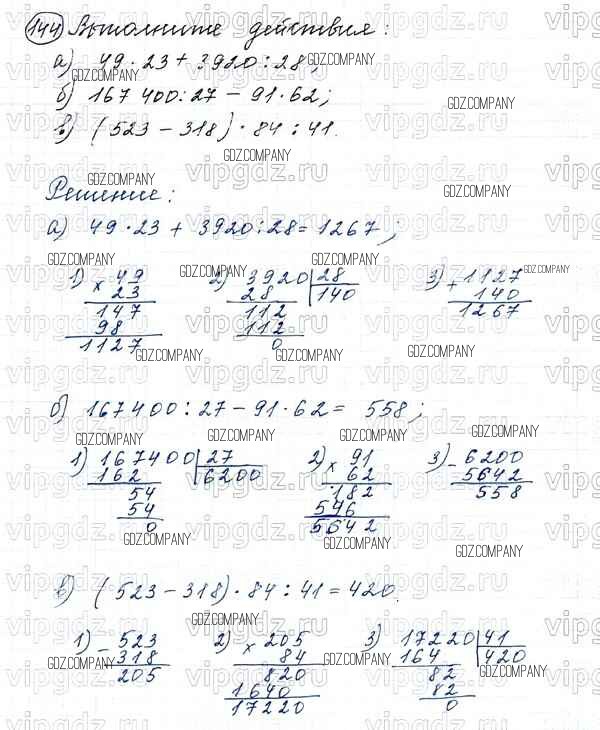 144 Выполните действия:
а) 49 · 23 + 3920 : 28;
б) 167 400 : 27 − 91 · 62;
в) (523 − 318) · 84 : 41.
Решение:
а) 49 · 23 + 3920 : 28 = 1267;
1) × 49 2) 3920 | 28 3) + 1127
23 28 140 140
147 112 1267
98 112
1127 0
б) 167400 : 27 − 91 · 62 = 558;
1) 167400 | 27 2) × 91 3) − 6200
162 6200 62 5642
54 182 558
54 546
0 5642
в) (523 − 318) · 84 : 41 = 420.
1) − 523 2) × 205 3) 17220 | 41
318 84 164 420
205 820 82
1640 82
17220 0
vipgdz.ru
GDZ.COMPANY